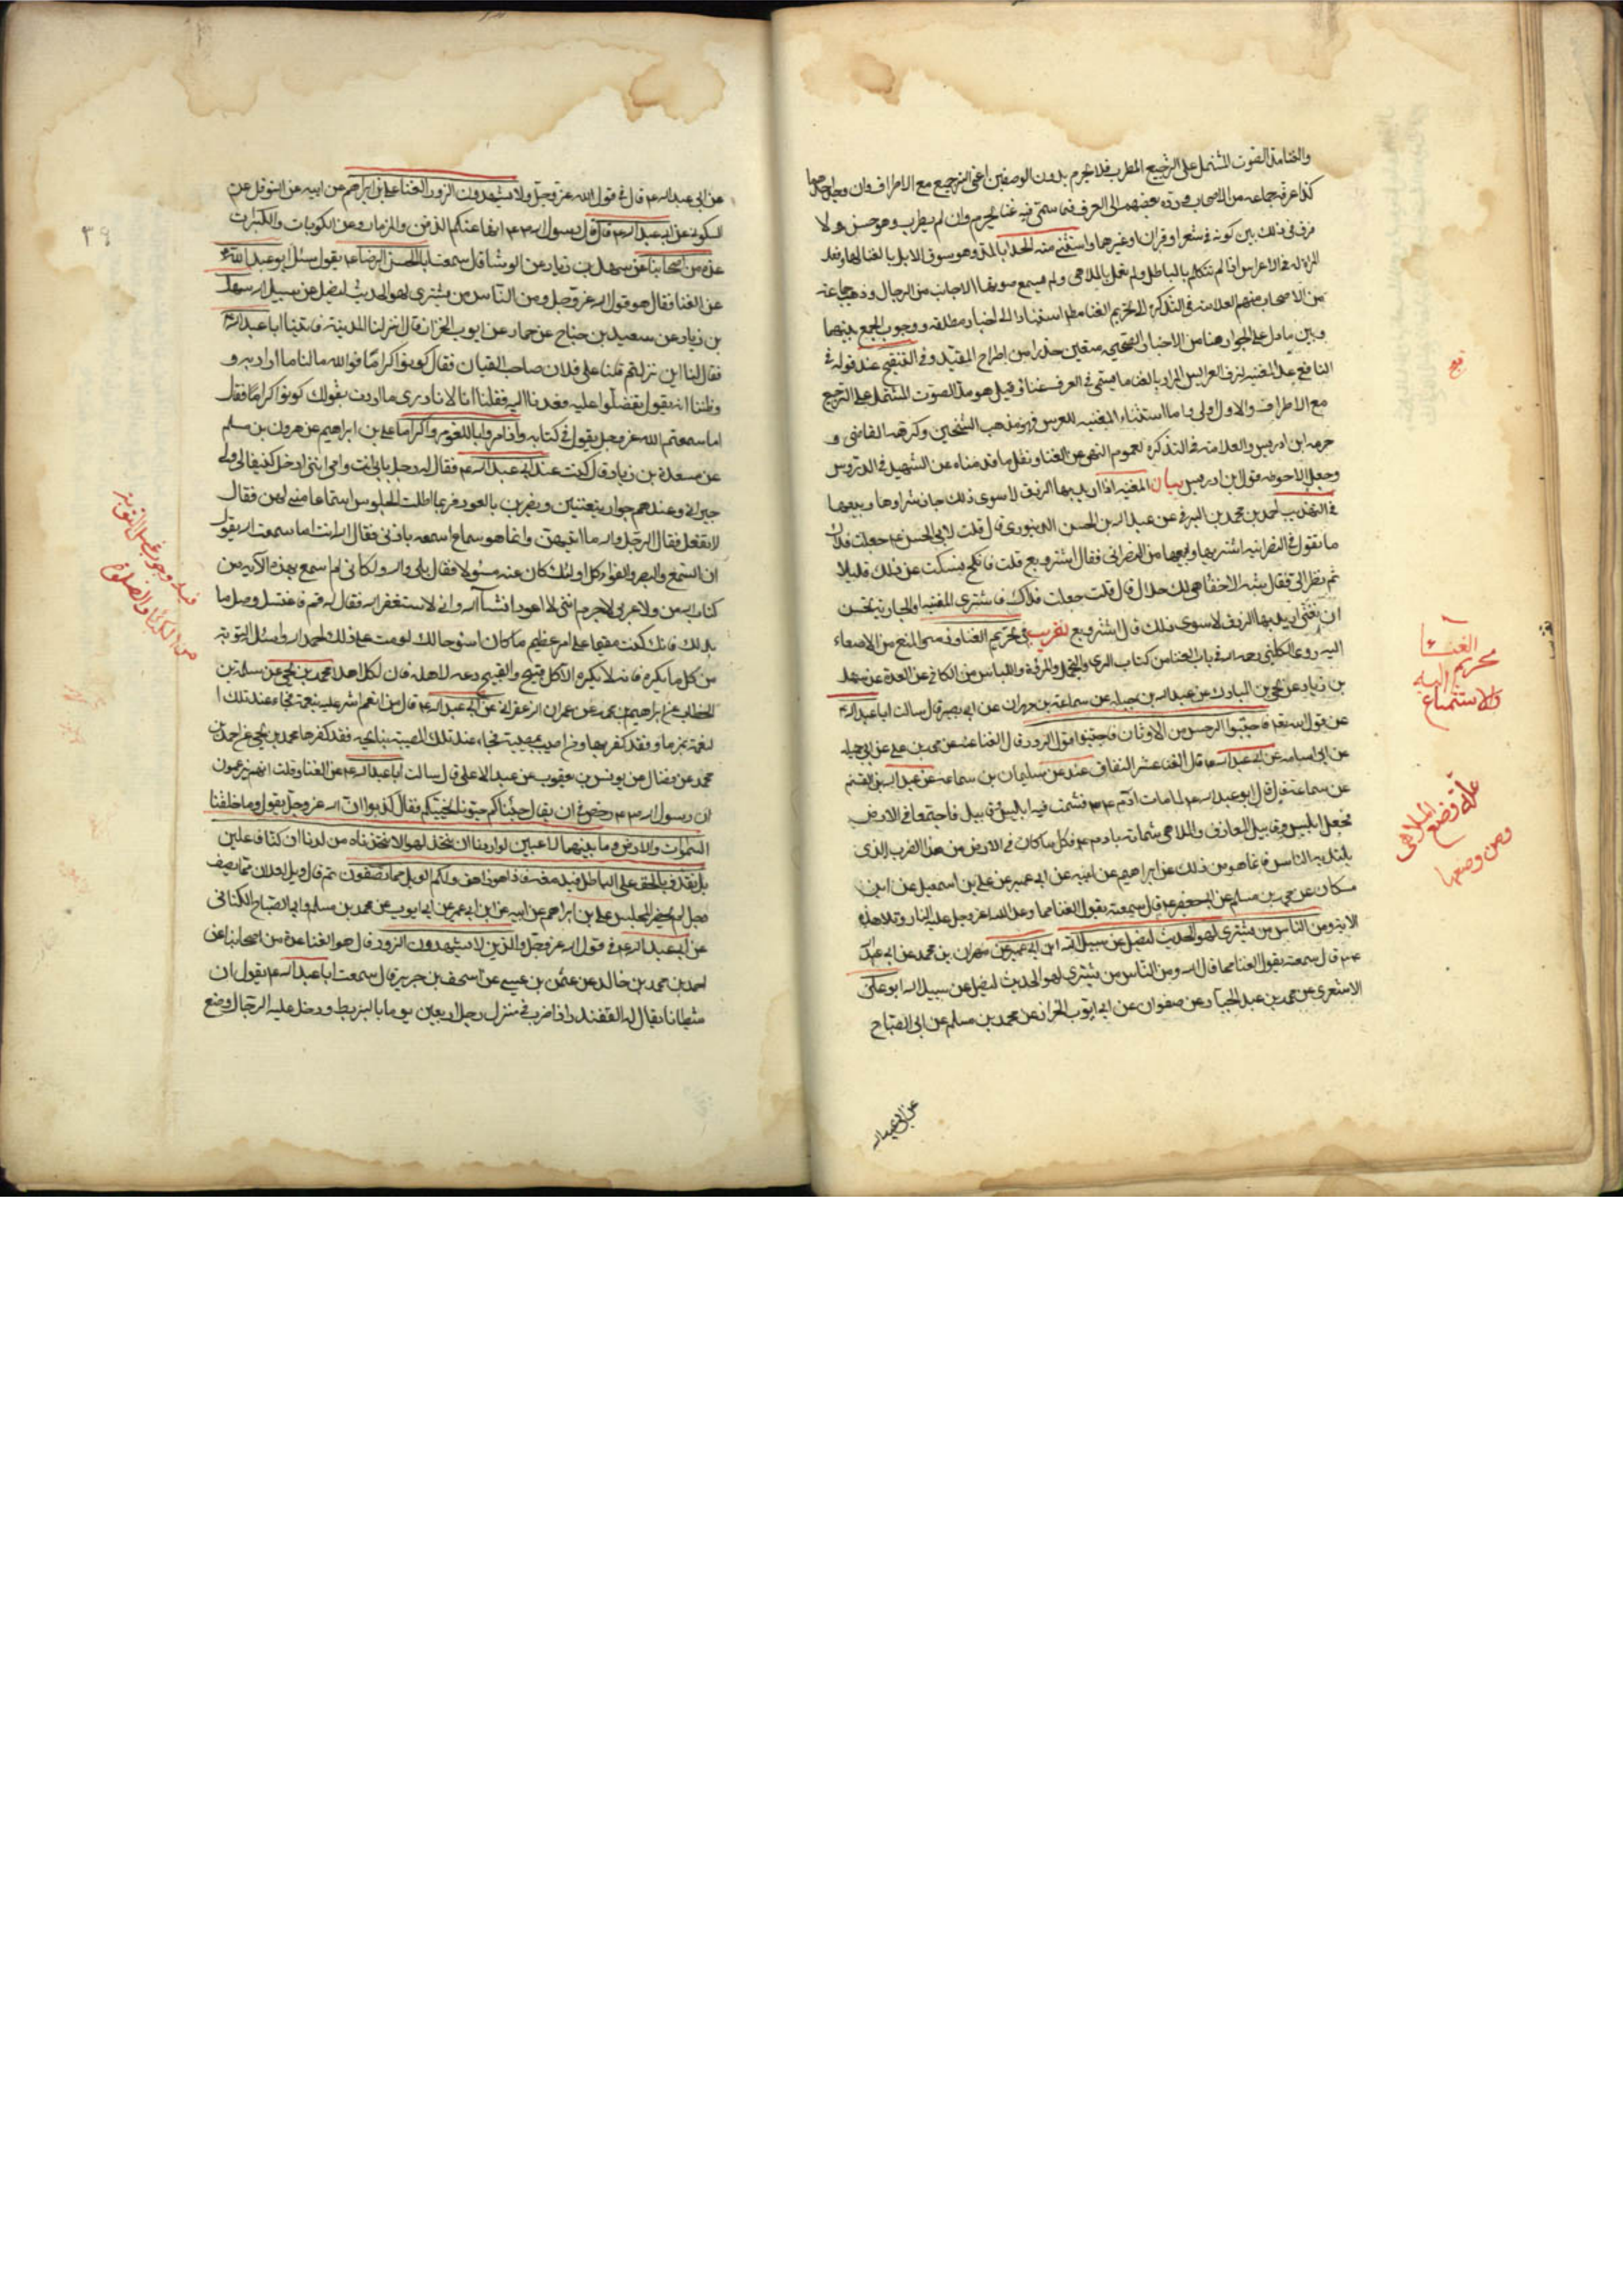 والغنا مد الصوت المشتمل على الترجيع المطرب فلا يحرم بدون الوصفين اعنى الترجيع مع الاطراف وان وجد احدهما
كذا عرفه جماعه من الاصحاب ورده بعضهم الى العرف فما سمى فيه غنا يحرم وان لم يطرب وهو حسن ولا
فرق فى ذلك بين كونه فى شعر او قران او غيرهما واستثنى منه الحدا بالمد وهو سوق الابل بالغنا لها وفعل
المراه له فى الاعراس اذا لم تتكلم بالباطل ولم تعمل بالملاهى ولم يسمع صوتها الاجانب من الرجال وذهب جماعه
من الاصحاب منهم العلامه فى التذكره الى تحريم الغنا مطلقا استنادا الى اخبار مطلقه ووجوب الجمع بينهما
وبين ما دل على الجواز هنا من الاخبار الصحيحه متعين حذرا من اطراح المقيد وفى التنقيح عند قوله فى
النافع عدا المغنيه لزف العرايس المراد بالغنا ما يسمى فى العرف غناء وقيل هو مد الصوت المشتمل على الترجيع
مع الاطراب والاول اولى واما استثناء المغنيه للعرس فهو مذهب الشيخين وكرهه القاضى و
حرمه ابن ادريس والعلامه فى التذكره لعموم النهى عن الغنا ونقل ما قدمناه عن الشهيد فى الدروس
وجعل الاحوط قول ابن ادريس بيان المغنيه اذا اريد بها الرزق لا سوى ذلك جاز شراوها وبيعها
فى التهذيب احمد بن محمد بن البرقى عن عبد الله بن الحسن الدينورى قال قلت لابى الحسن ع جعلت فداك
ما تقول فى النصرانيه اشتريها وابيعها من النصرانى فقال اشتر وبع قلت فانكح فسكت عن ذلك قليلا
ثم نظر الى فقال شبه الاخفا هى لك حلال قال قلت جعلت فداك فاشترى المغنيه او الجاريه تحسن
ان تغنى اريد بها الرزق لا سوى ذلك قال اشتر وبع تقريب فى تحريم الغنا وفيه معنى المنع من الاصغاء
اليه روى الكلينى رحمه الله فى باب الغنا من كتاب الزى والتجمل والمروة واللباس من الكافى عن العدة عن سهل
بن زياد عن يحيى بن المبارك عن عبد الله بن جبله عن سماعة بن مهران عن ابى بصير قال سالت ابا عبد الله ع
عن قول الله تعه فاجتنبوا الرجس من الاوثان واجتنبوا قول الزور قال الغنا عنه عن محمد بن على عن ابى جميله
عن ابى اسامه عن ابى عبد الله ع قال الغنا عش النفاق عنه عن سليمان بن سماعه عن عبد الله بن القسم
عن سماعة قال قال ابو عبد الله ع لما مات ادم ع شمت فيه ابليس وقابيل فاجتمعا فى الارض
فجعل ابليس وقابيل المعازف والملاهى شماتة بادم ع فكل ما كان فى الارض من هذا الضرب الذى
يلتذ به الناس فانما هو من ذلك على بن ابراهيم عن ابيه عن ابن ابى عمير عن على بن اسمعيل عن ابن
مسكان عن محمد بن مسلم عن ابى جعفر ع قال سمعته يقول الغنا مما وعد الله عز وجل عليه النار وتلا هذه
الايه ومن الناس من يشترى لهو الحديث ليضل عن سبيل الله ابن ابى عمير عن مهران بن محمد عن ابى عبد
الله ع قال سمعته يقول الغنا مما قال الله ومن الناس من يشترى لهو الحديث ليضل عن سبيل الله ابو على
الاشعرى عن محمد بن عبد الجبار عن صفوان عن ابى ايوب الخزاز عن محمد بن مسلم عن ابى الصباح
عن ابى عبد الله
الغناء
تحريم اليه
والاستماع
علة وضع الملاهى
ومن وضعها
٣٩
عن ابى عبد الله ع قال فى قول الله عز وجل ولا يشهدون الزور الغنا على بن ابراهيم عن ابيه عن النوفلى عن
السكونى عن ابى عبد الله ع قال قال رسول الله ص انها عنكم الزفن والمزمار وعن الكوبات والكبرات
عدة من اصحابنا عن سهل بن زياد عن الوشا قال سمعت ابا الحسن الرضا ع يقول سئل ابو عبد الله ع
عن الغنا فقال هو قول الله عز وجل ومن الناس من يشترى لهو الحديث ليضل عن سبيل الله سهل
بن زياد عن سعيد بن جناح عن حماد عن ابى ايوب الخزاز قال نزلنا المدينة فاتينا ابا عبد الله ع
فقال لنا اين نزلتم قلنا على فلان صاحب القيان فقال كونوا كراما فوالله ما لنا ما اراد به و
وظننا انه يقول تفضلوا عليه فعدنا اليه فقلنا انا لا ندرى ما اردت بقولك كونوا كراما فقال
اما سمعتم الله عز وجل يقول فى كتابه واذا مروا باللغو مروا كراما على بن ابراهيم عن هرون بن مسلم
عن مسعدة بن زياد قال كنت عند ابى عبد الله ع فقال له رجل بابى انت وامى اننى ادخل كنيفا لى ولى
جيران وعندهم جوار يتغنين ويضربن بالعود فربما اطلت الجلوس استماعا منى لهن فقال
لا تفعل فقال الرجل والله ما اتيهن وانما هو سماع اسمعه باذنى فقال لله انت اما سمعت الله يقول
ان السمع والبصر والفؤاد كل اولئك كان عنه مسئولا فقال بلى والله ولكانى لم اسمع بهذه الاية من
كتاب الله من ولا عربى لا جرم اننى لا اعود انشا الله وانى لاستغفر الله فقال له قم فاغتسل وصل ما
بدا لك فانك كنت مقيما على امر عظيم ما كان اسوء حالك لو مت على ذلك احمد الله واسئله التوبة
من كل ما يكره فانه لا يكره الا كل قبيح والقبيح دعه لاهله فان لكل اهلا محمد بن يحيى عن سلمة بن
الخطاب عن ابراهيم بن محمد عن عمران الزعفرانى عن ابى عبد الله ع قال من انعم الله عليه بنعمة فجاء عند تلك ا
لنعمة بمزمار فقد كفرها ومن اصيب بمصيبة فجاء عند تلك المصيبة بنايحه فقد كفرها محمد بن يحيى عن احمد بن
محمد عن بن فضال عن يونس بن يعقوب عن عبد الاعلى قال سالت ابا عبد الله ع عن الغنا وقلت انهم يزعمون
ان رسول الله ص رخص فى ان يقال جئناكم جئناكم حيونا نحييكم فقال كذبوا ان الله عز وجل يقول وما خلقنا
السموات والارض وما بينهما لاعبين لو اردنا ان نتخذ لهوا لاتخذناه من لدنا ان كنا فاعلين
بل نقذف بالحق على الباطل فيدمغه فاذا هو زاهق ولكم الويل مما تصفون ثم قال ويل لفلان مما يصف
رجل لم يحضر المجلس على بن ابراهيم عن ابيه عن ابن ابى عمير عن ابى ايوب عن محمد بن مسلم وابى الصباح الكنانى
عن ابى عبد الله ع فى قول الله عز وجل والذين لا يشهدون الزور قال هو الغنا عدة من اصحابنا عن
احمد بن محمد بن خالد عن عثمن بن عيسى عن اسحق بن جرير قال سمعت ابا عبد الله ع يقول ان
شيطانا يقال له القفندر اذا ضرب فى منزل رجل اربعين يوما بالبربط ودخل عليه الرجال وضع
فيه وجوب غسل التوبة
من الكبائر والصلوة